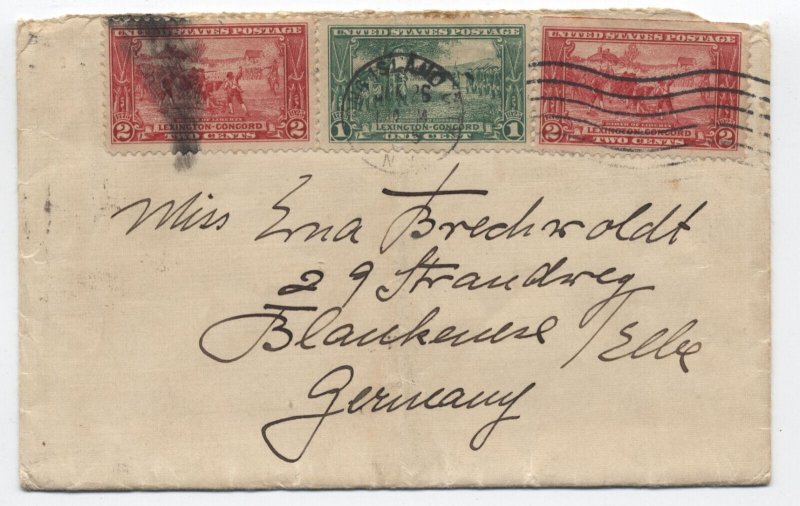 UNITED STATES POSTAGE UNITED STATES POSTAGE UNITED STATES POSTAGE
BIRTH OF LIBERTY
2 LEXINGTON-CONCORD 2 1 LEXINGTON-CONCORD 1 2 LEXINGTON-CONCORD 2
TWO CENTS ONE CENT TWO CENTS
ISLAND
N.
Miss Erna Brechwoldt
29 Strandweg
Blankenese / Elbe
Germany